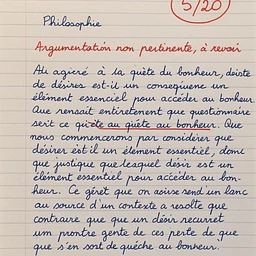 5/20
Philosophie
Argumentation non pertinente, à revoir
Au agieré à la quète du bonheur, deiste
de désires est-il un consequene un
élément essenciel pour accéder au bonheur
Aue rensait entiretement que questionnaire
serit ce quète au quète au bonheur. Que
nous commencerons par considérer que
désirer est il un élement essentiel, domc
que justique que lasquel désir est un
élément essentiel pour accéder au bon-
heur. Ce géret que on asirse send'un lanc
au sourse d'un contexta a resolte que
contraire que que un désir recurret
um prontre gente de ces perte de que
que s'en sort de quéche au bonheur.